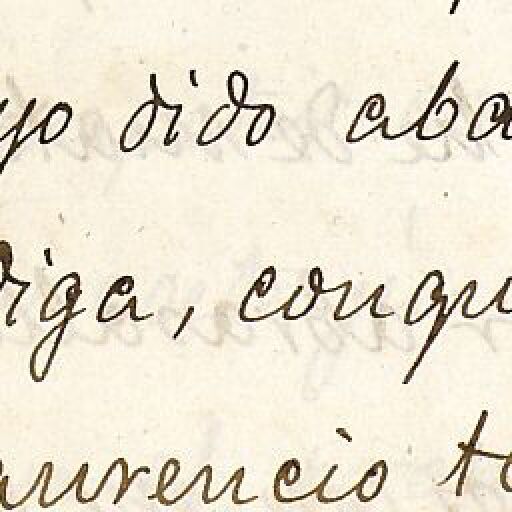 yo dido aba
diga, conqu
aurencio te